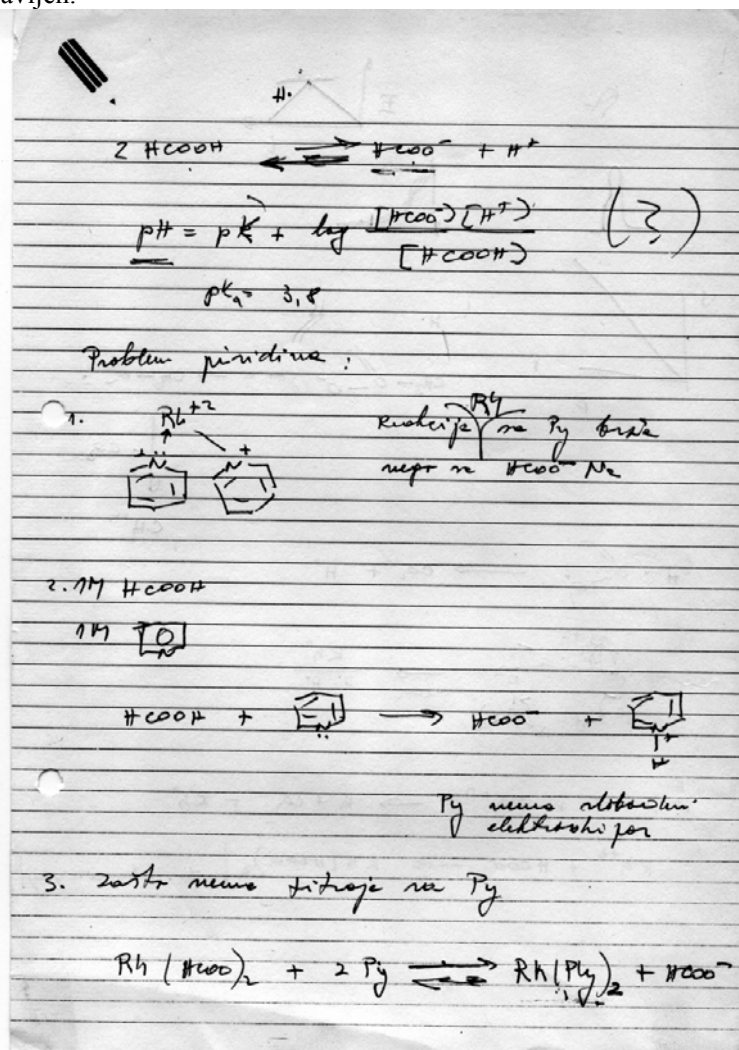 avljen.
H.
2 HCOOH ⇌ HCOO⁻ + H⁺
pH = pK + log [HCOO⁻][H⁺] / [HCOOH] (?)
pKa = 3,8
Problem piridina :
1. Rh⁺² Rh
na Py brže
nego na HCOO⁻ Na
2. 1M HCOOH
1M
HCOOH + → HCOO⁻ +
N
H
Py nema slobodni
elektronski par
3. Zašto nema na Py
Rh (HCOO)₂ + 2 Py ⇌ Rh(Py)₂ + HCOO⁻